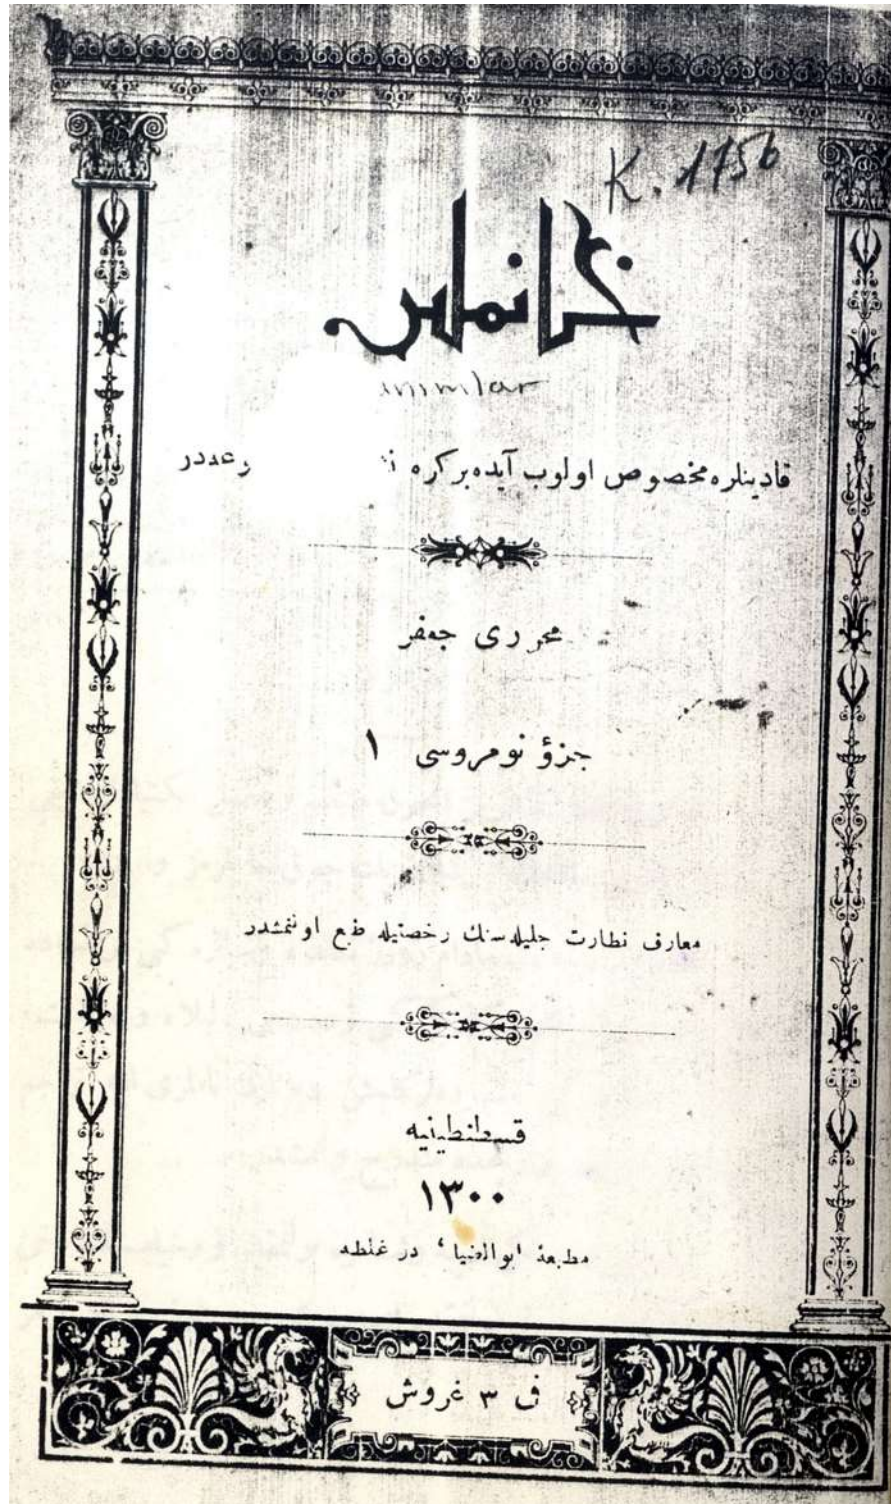 K. 1756
خانملر
anımlar
قادینلره مخصوص اولوب آیده بر کره
محرری جعفر
جزؤ نومروسی ١
معارف نظارت جلیله سنك رخصتیله طبع اولنمشدر
قسطنطینیه
١٣٠٠
مطبعهٔ ابوالضیا، در غلطه
ف ٣ غروش